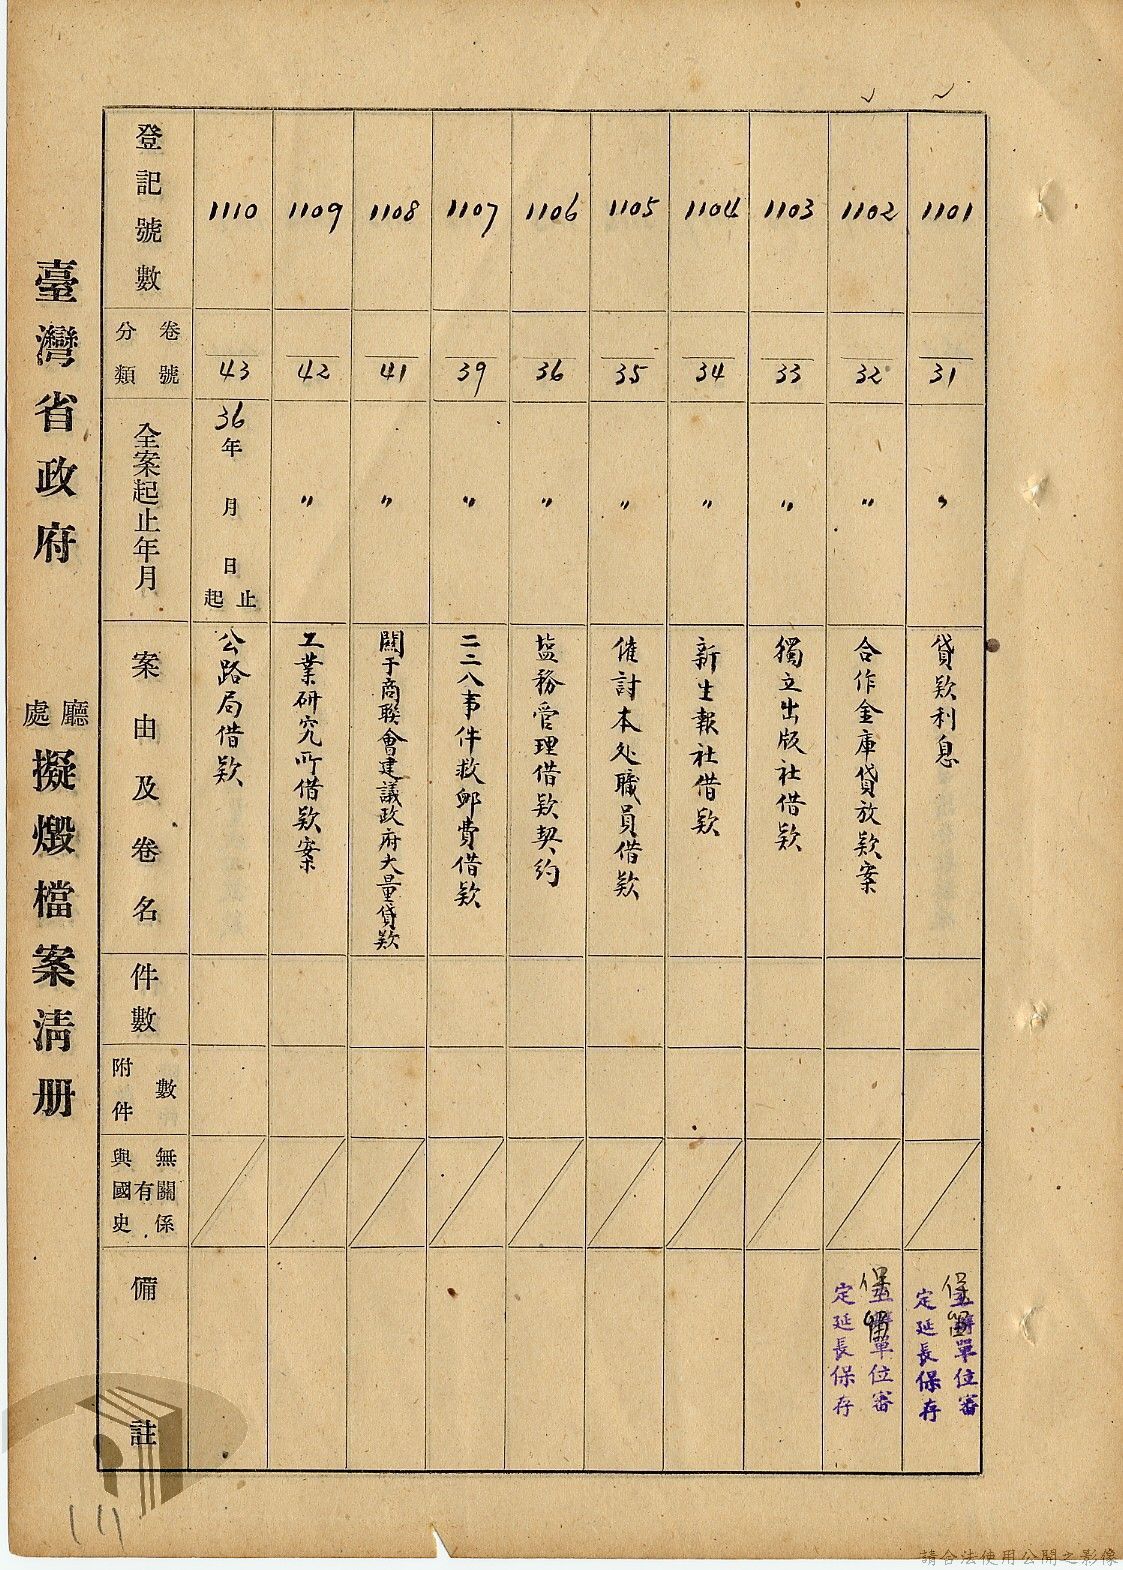 臺灣省政府 處廳 擬燬檔案清册
登記號數
分類 卷號
全案起止年月
案由及卷名
件數
附件數
與國史有無關係
備註
1110
43
36年 月 日 起止
公路局借欵
1109
42
〃
工業研究所借欵案
1108
41
〃
關于商聯會建議政府大量貸欵
1107
39
〃
二二八事件救邮費借欵
1106
36
〃
塩務管理借欵契約
1105
35
〃
催討本处職員借欵
1104
34
〃
新生報社借欵
1103
33
〃
獨立出版社借欵
1102
32
〃
合作金庫貸放欵案
保留
主辦單位審
定延長保存
1101
31
〃
貸欵利息
保留
主辦單位審
定延長保存
請合法使用公開之影像